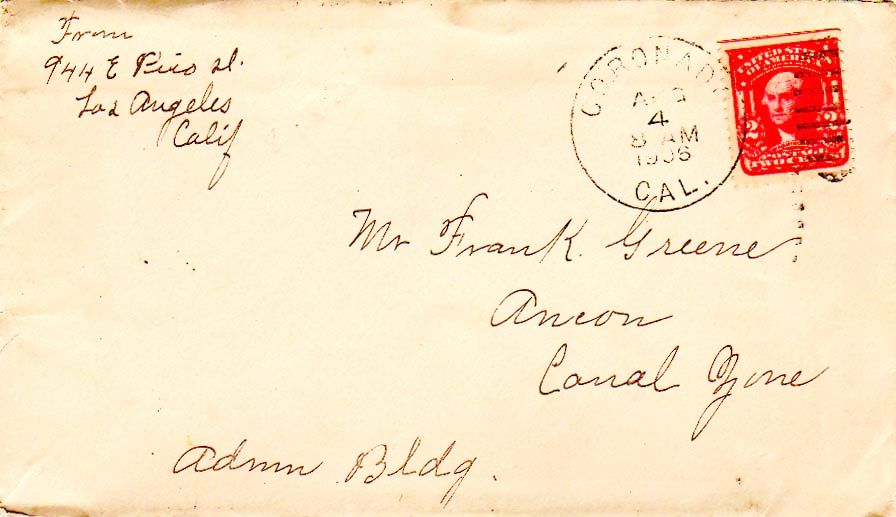 From
944 E Pico St.
Los Angeles
Calif
CORONADO
AUG
4
8 AM
1906
CAL.
UNITED STATES
OF AMERICA
2 2
POSTAGE
TWO CENTS
Mr Frank Greene
Ancon
Canal Zone
Admn Bldg.